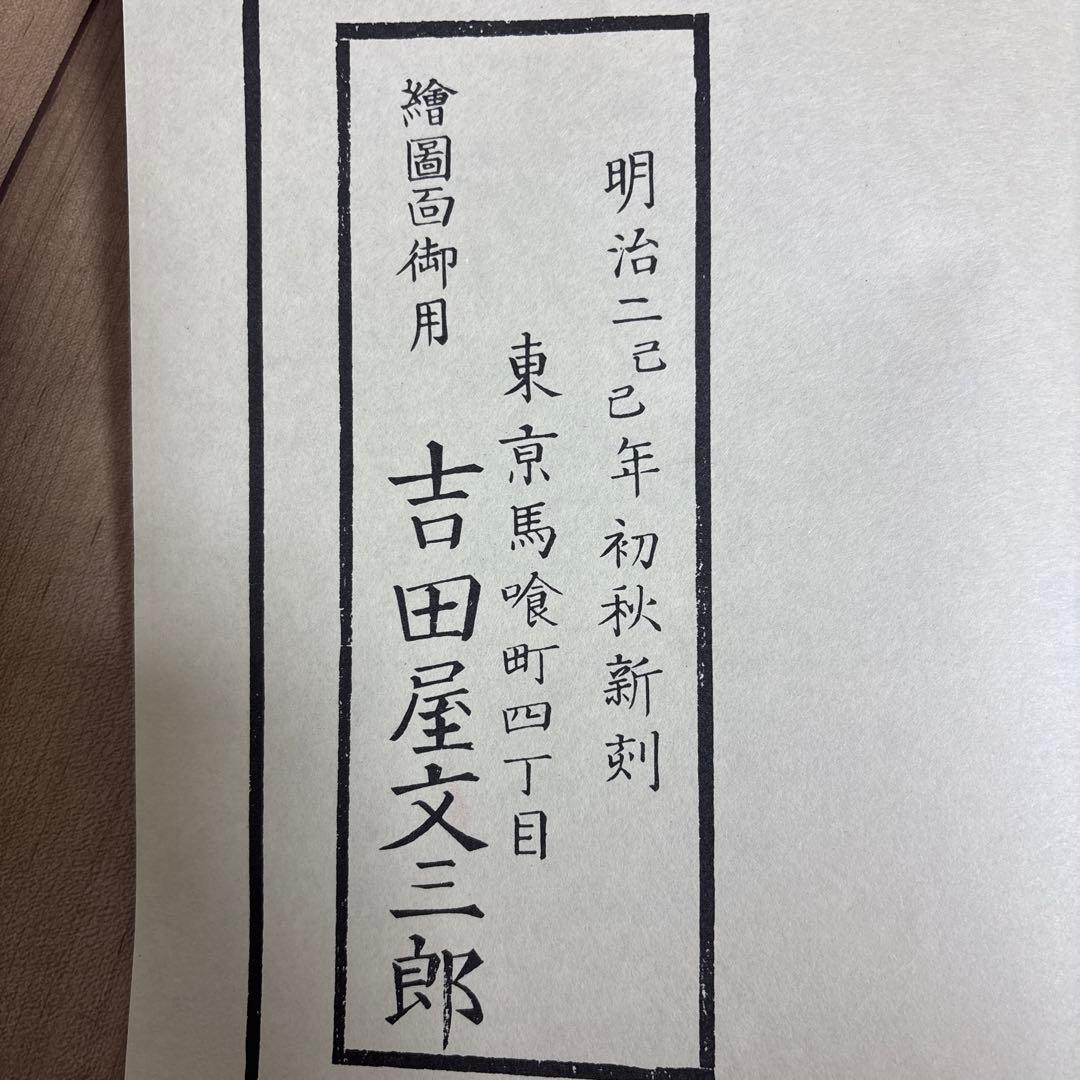 明治二己巳年初秋新刻
東亰馬喰町四丁目
繪圖面御用 吉田屋文三郎